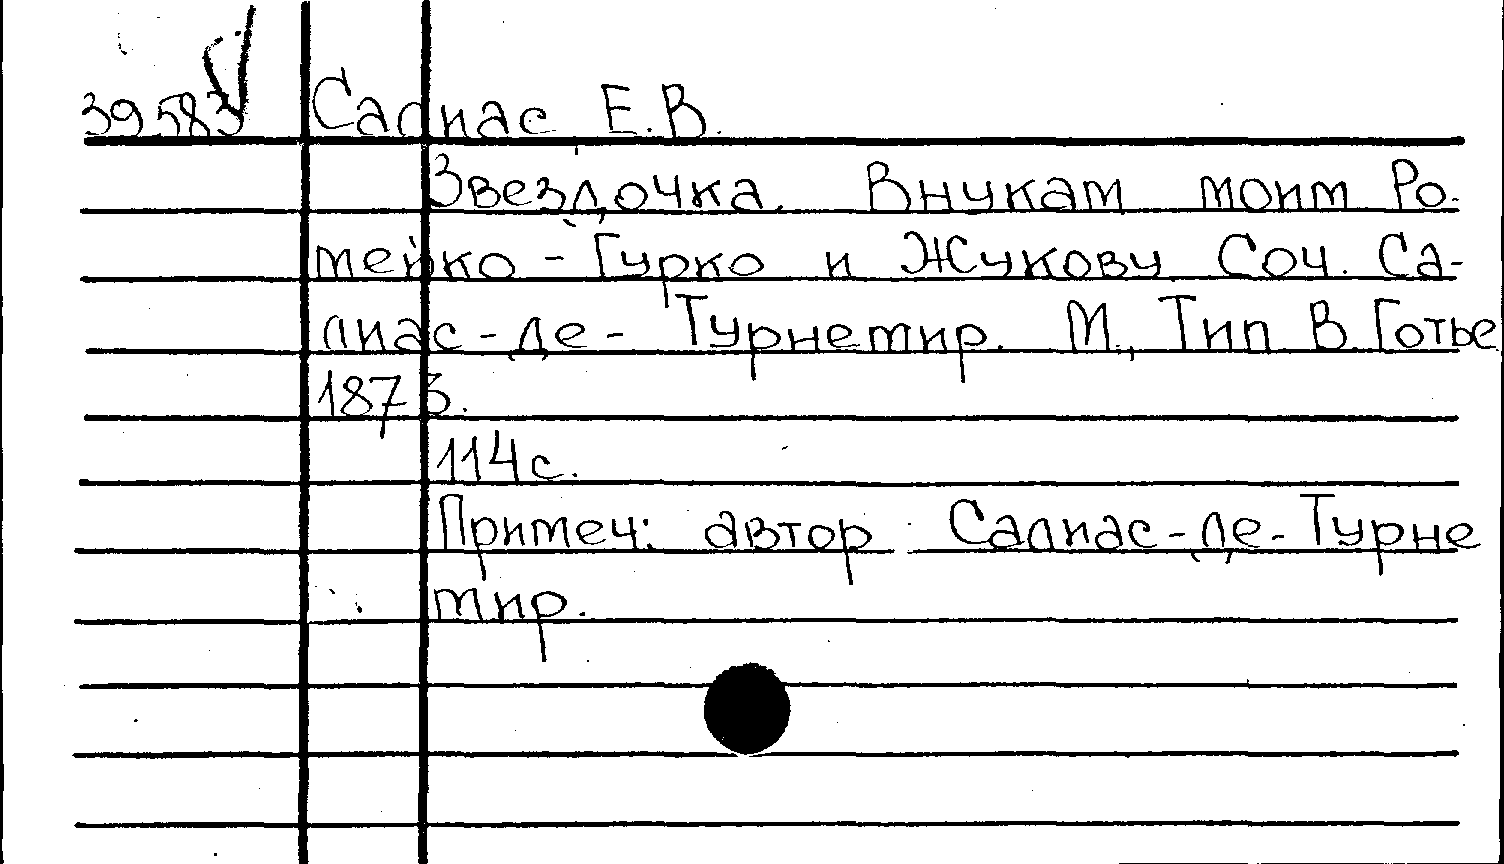 39583 Салиас Е.В.
Звездочка. Внукам моим Ро-
мейко-Гурко и Жукову Соч. Са-
лиас-де-Турнемир. М., Тип В. Готье
1873.
114с.
Примеч: автор Салиас-де-Турне
мир.